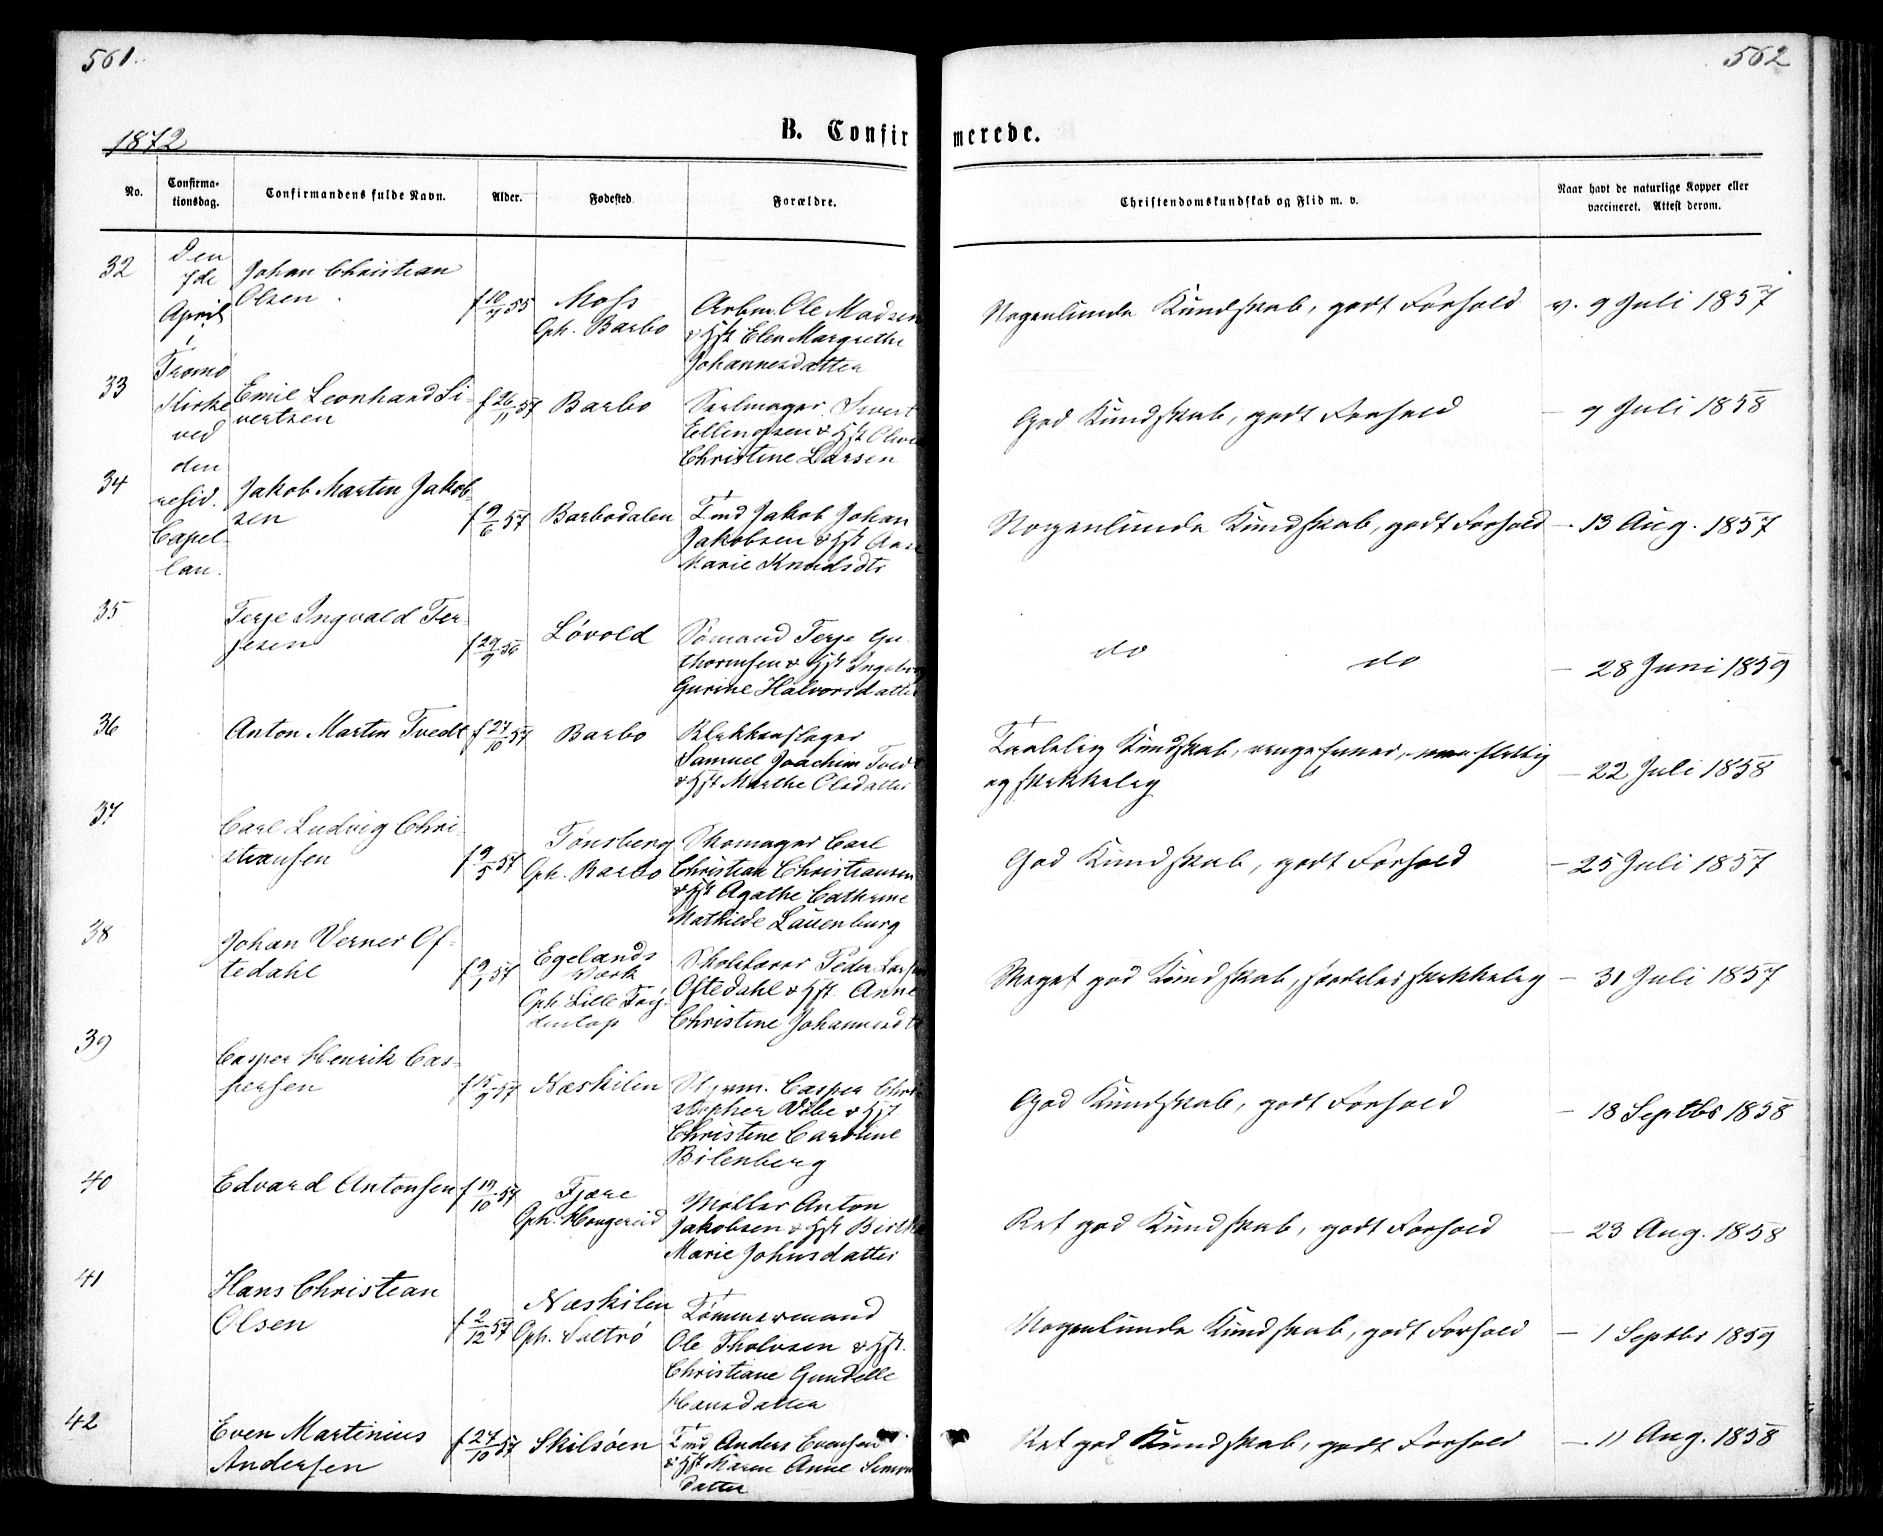 561.
562
1872
B. Confirmerede.
No.
Confirma-
tionsdag.
Confirmandens fulde Navn.
Alder.
Fødested
Forældre.
Christendomskundskab og Flid m. v.
Naar havt de naturlige Kopper eller
vaccineret. Attest derom.
Den
7de
April
i
Tromø
Kirke
ved
den
resid.
Capel-
lan.
32
Johan Christian
Olsen
f 10/4 55
Moss
Oph. Barbo
Arbm. Ole Madsen
& Hst Elen Margrethe
Johannesdatter
Nogenlunde Kundskab, godt Forhold
v. 9 Juli 1857
33
Emil Leonhard Si-
vertsen
f 26/11 57
Barbo
Seilmager Sivert
Ellingsen & Hst Olive
Christine Larsen
God Kundskab, godt Forhold
— 9 Juli 1858
34
Jakob Martin Jakob-
sen
f 9/6 57
Barbodalen
Tmd Jakob Johan
Jakobsen & Hst Aase
Marie Knudsdtr
Nogenlunde Kundskab, godt Forhold
— 13 Aug. 1857
35
Terje Ingvald Ter-
jesen
f 29/9 56
Løvold
Sømand Terje Gu-
thormsen & Hst Ingeborg
Gurine Halvorsdatter
do do
— 28 Juni 1859
36
Anton Martin Tvedt
f 27/10 57
Barbo
Blikkenslager
Samuel Joachim Tvedt
& Hst Marthe Olsdatter
Taalelig Kundskab, ringe Evner, flittig
og skikkelig
— 22 Juli 1858
37
Carl Ludvig Chri-
stiansen
f 9/5 57
Tønsberg
Oph. Barbo
Skomager Carl
Christian Christiansen
& Hst Agathe Cathrine
Mathilde Lauenburg
God Kundskab, godt Forhold
— 25 Juli 1857
38
Johan Verner Of-
tedahl
f 9/1 57
Egelands
Værk
Oph. Lille
Skolelærer Peder Larsen
Oftedahl & Hst. Anne
Christine Johannesdtr
Meget god Kundskab, særdeles skikkelig
— 31 Juli 1857
39
Casper Henrik Cas-
persen
f 15/9 57
Næskilen
Styrm. Casper Chri-
stopher Vibe & Hst
Christine Caroline
Bilenberg
God Kundskab, godt Forhold
— 18 Septbr 1858
40
Edvard Antonsen
f 19/10 57
Fjære
Oph. Hougereid
Møller Anton
Jakobsen & Hst Birthe
Marie Johnsdatter
Ret god Kundskab, godt Forhold
— 23 Aug. 1858
41
Hans Christian
Olsen
f 2/12 57
Næskilen
Oph. Saltrø
Tømmermand
Ole Tholvsen & Hst.
Christiane Gundelle
Hansdatter
Nogenlunde Kundskab, godt Forhold
— 1 Septbr 1859
42
Even Martinius
Andersen
f 27/10 57
Skilsøen
Tmd Anders Evensen
& Hst Maren Anne Simons
datter
Ret god Kundskab, godt Forhold
— 11 Aug. 1858